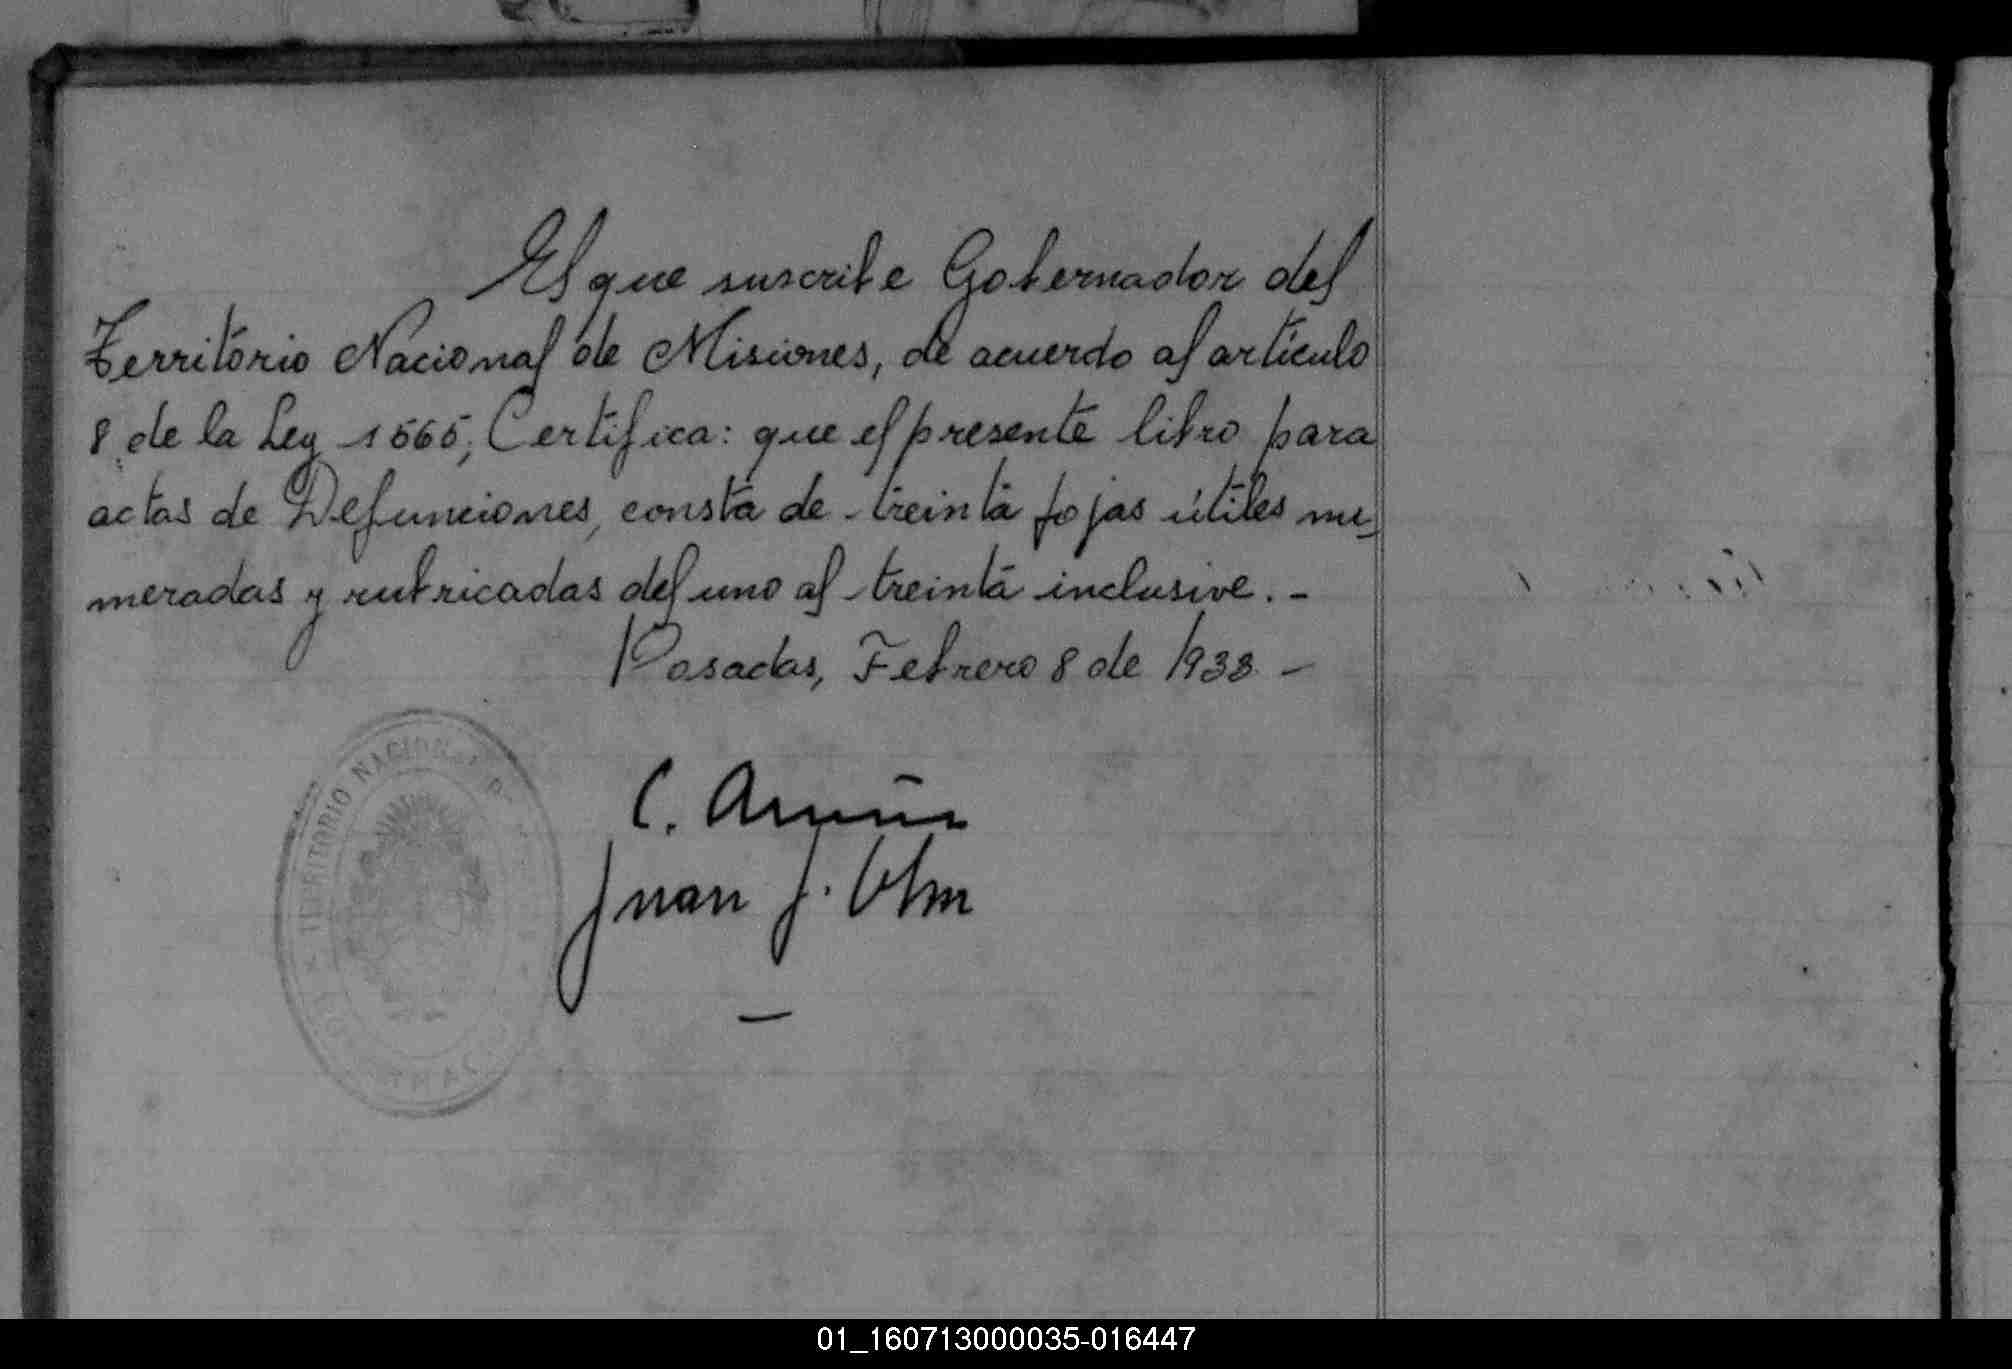 El que suscribe Gobernador del
Territorio Nacional de Misiones, de acuerdo al artículo
8 de la Ley 1565, Certifica: que el presente libro para
actas de Defunciones, consta de treinta fojas útiles nu-
meradas y rubricadas del uno al treinta inclusive. -
Posadas, Febrero 8 de 1938 -
TERRITORIO NACIONAL
C.
Juan J.
01_160713000035-016447